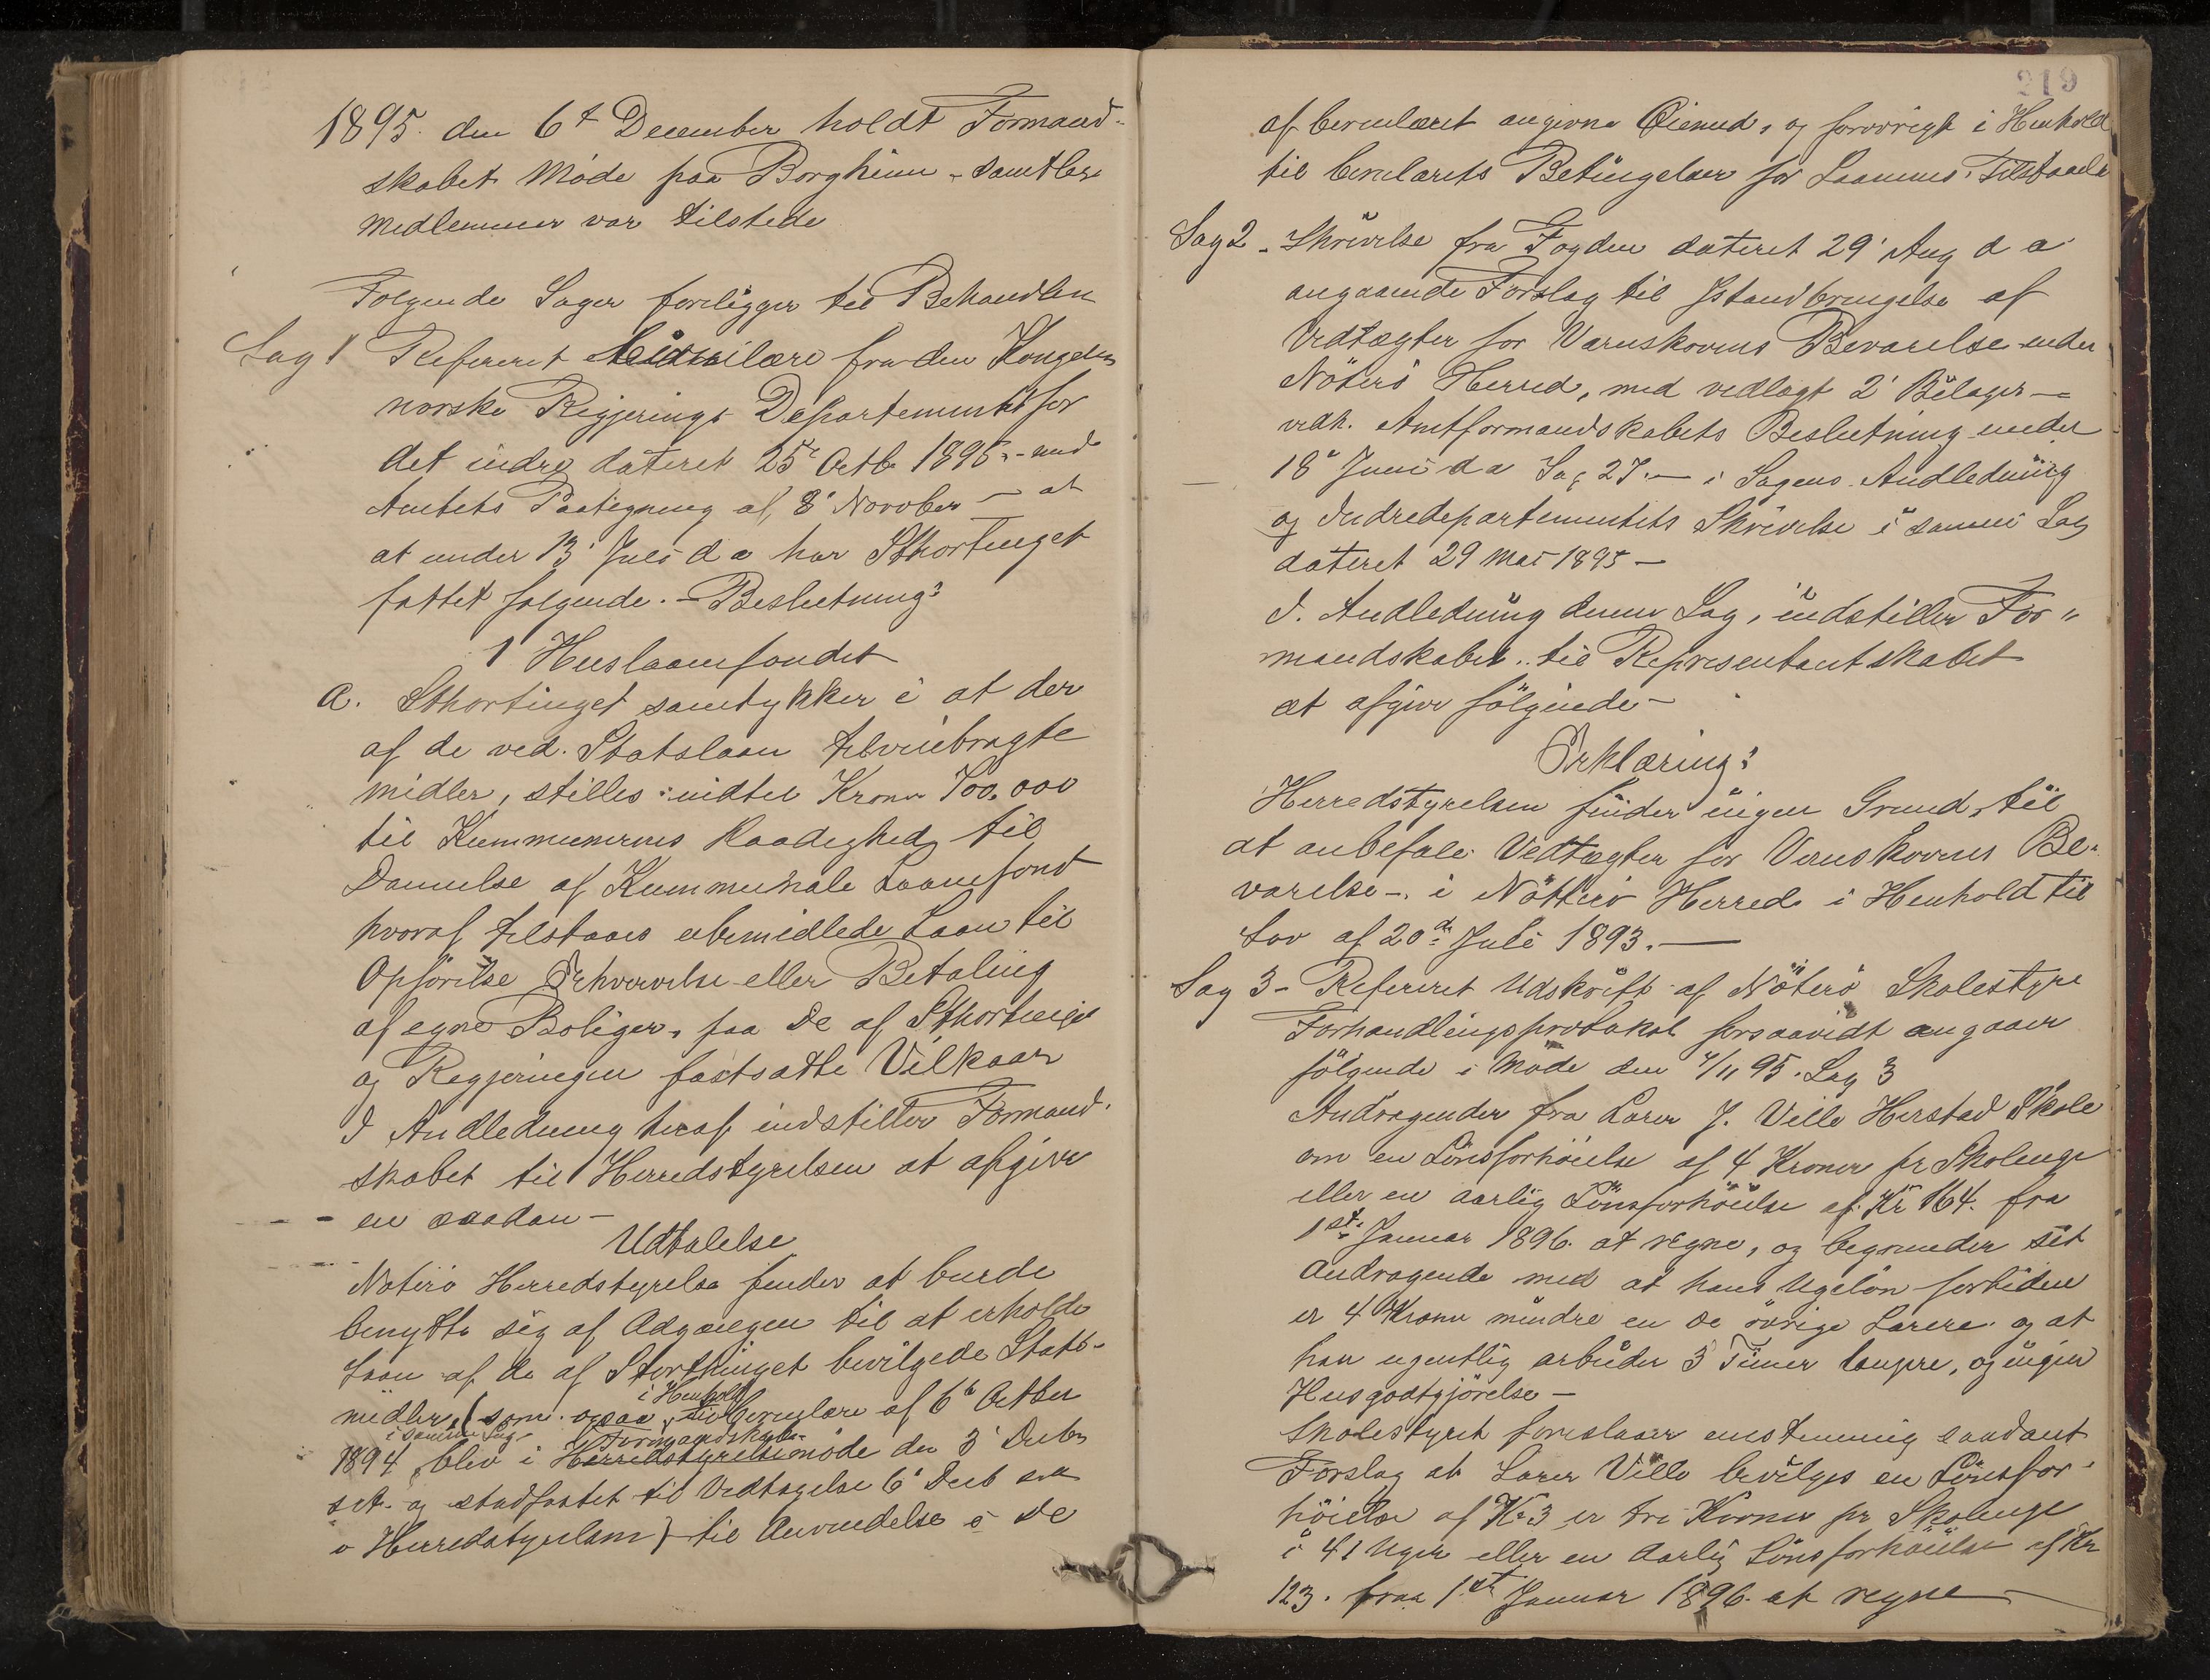 1895. den 6t December holdt Formand-
skabet Møde paa Borgheim - samtlige
medlemmer var tilstede
Følgende Sager foreligger til Behandlin
Sag 1 Refereret Cirkulære fra den Kongelig
norske Regjerings Departementet for
det indre dateret 25e Octb. 1895 - med
Amtets Paategning af 8' November - at
at under 13' Juli d a har Sthortinget
fattet følgende. - Beslutning:
1 Huslaanefondet
a. Sthortinget samtykker i at der
af de ved. Statslaan tilveiebragte
midler, stilles indtil Kroner 500,000
til Kummunernes Raadighed til
Dannelse af Kummunale Laanefond
hvoraf tilstaaes ubemidlede Laan til
Opførelse Erhvervelse eller Betaling
af egne Boliger, paa de af Sthortinget
og Regjeringen fastsatte Vilkaar
I Andledning heraf indstiller Formand-
skabet til Herredstyrelsen at afgive
en saadan -
Udtalelse
Nøterø Herredstyrelse finder at burde
benytte sig af Adgangen til at erholde
Laan af de af Storthinget bevilgede Stats-
midler (som ogsaa i Henhold til Cerculære af 6te Octber
1894 i samme Sag blev i Formandskabs- Herredstyrelsemøde den 3' Decbr
og stadfæstet til Vedtagelse 6' Decb
i Herredstyrelsen) til Anvendelse i de
219
af Cerculæret angivne Øiemed, og forøvrigt i Henhold
til Cerculærets Betingelser for Laanenes Tilstaaelse
Sag 2 - Skrivelse fra Fogden dateret 29' Aug d a
angaaende Forslag til Istandbringelse af
Vedtægter for Værnskovens Bevarelse under
Nøterø Herred, med vedlagt 2' Bilager -
vedk. Amtformandskabets Beslutning under
18' Juni d a Sag 27. - i Sagens Andledning
og Indredepartementets Skrivelse i samme Sag
dateret 29 Mai 1895 -
I. Andledning denne Sag, indstiller For"
mandskabet.. til Representantskabet
at afgive følgende -
Erklæring:
Herredstyrelsen finder ingen Grund, til
at anbefale Vedtægter for Vernskovens Be-
varelse -. i Nøtterø Herred i Henhold til
Lov af 20de Juli 1893. -
Sag 3 - Refereret Udskrift af Nøterø Skolestyre
Forhandlingsprotokol forsaavidt angaaer
følgende i Møde den 4/11 95. Sag 3
Andragender fra Lærer J. Ville Herstad Skole
om en Lønsforhøielse af 4 Kroner pr Skoleuge
eller en aarlig Lønsforhøielse af Kr 164. fra
1ste Januar 1896. at regne, og begrunder sit
Andragende med at hans Ugeløn fortiden
er 4 Kroner mindre en de øvrige Lærere. og at
han ugentlig arbeider 3 Timer længre, og ingen
Husgodtgjørelse -
Skolestyret foreslaaer enstemmig saadant
Forslag at Lærer Ville bevilges en Lønsfor-
høielse af Kr 3 er tre Kroner pr Skoleuge
i 41 Uger eller en Aarlig Lønsforhøielse af Kr
123. fraa 1ste Januar 1896. at regne -